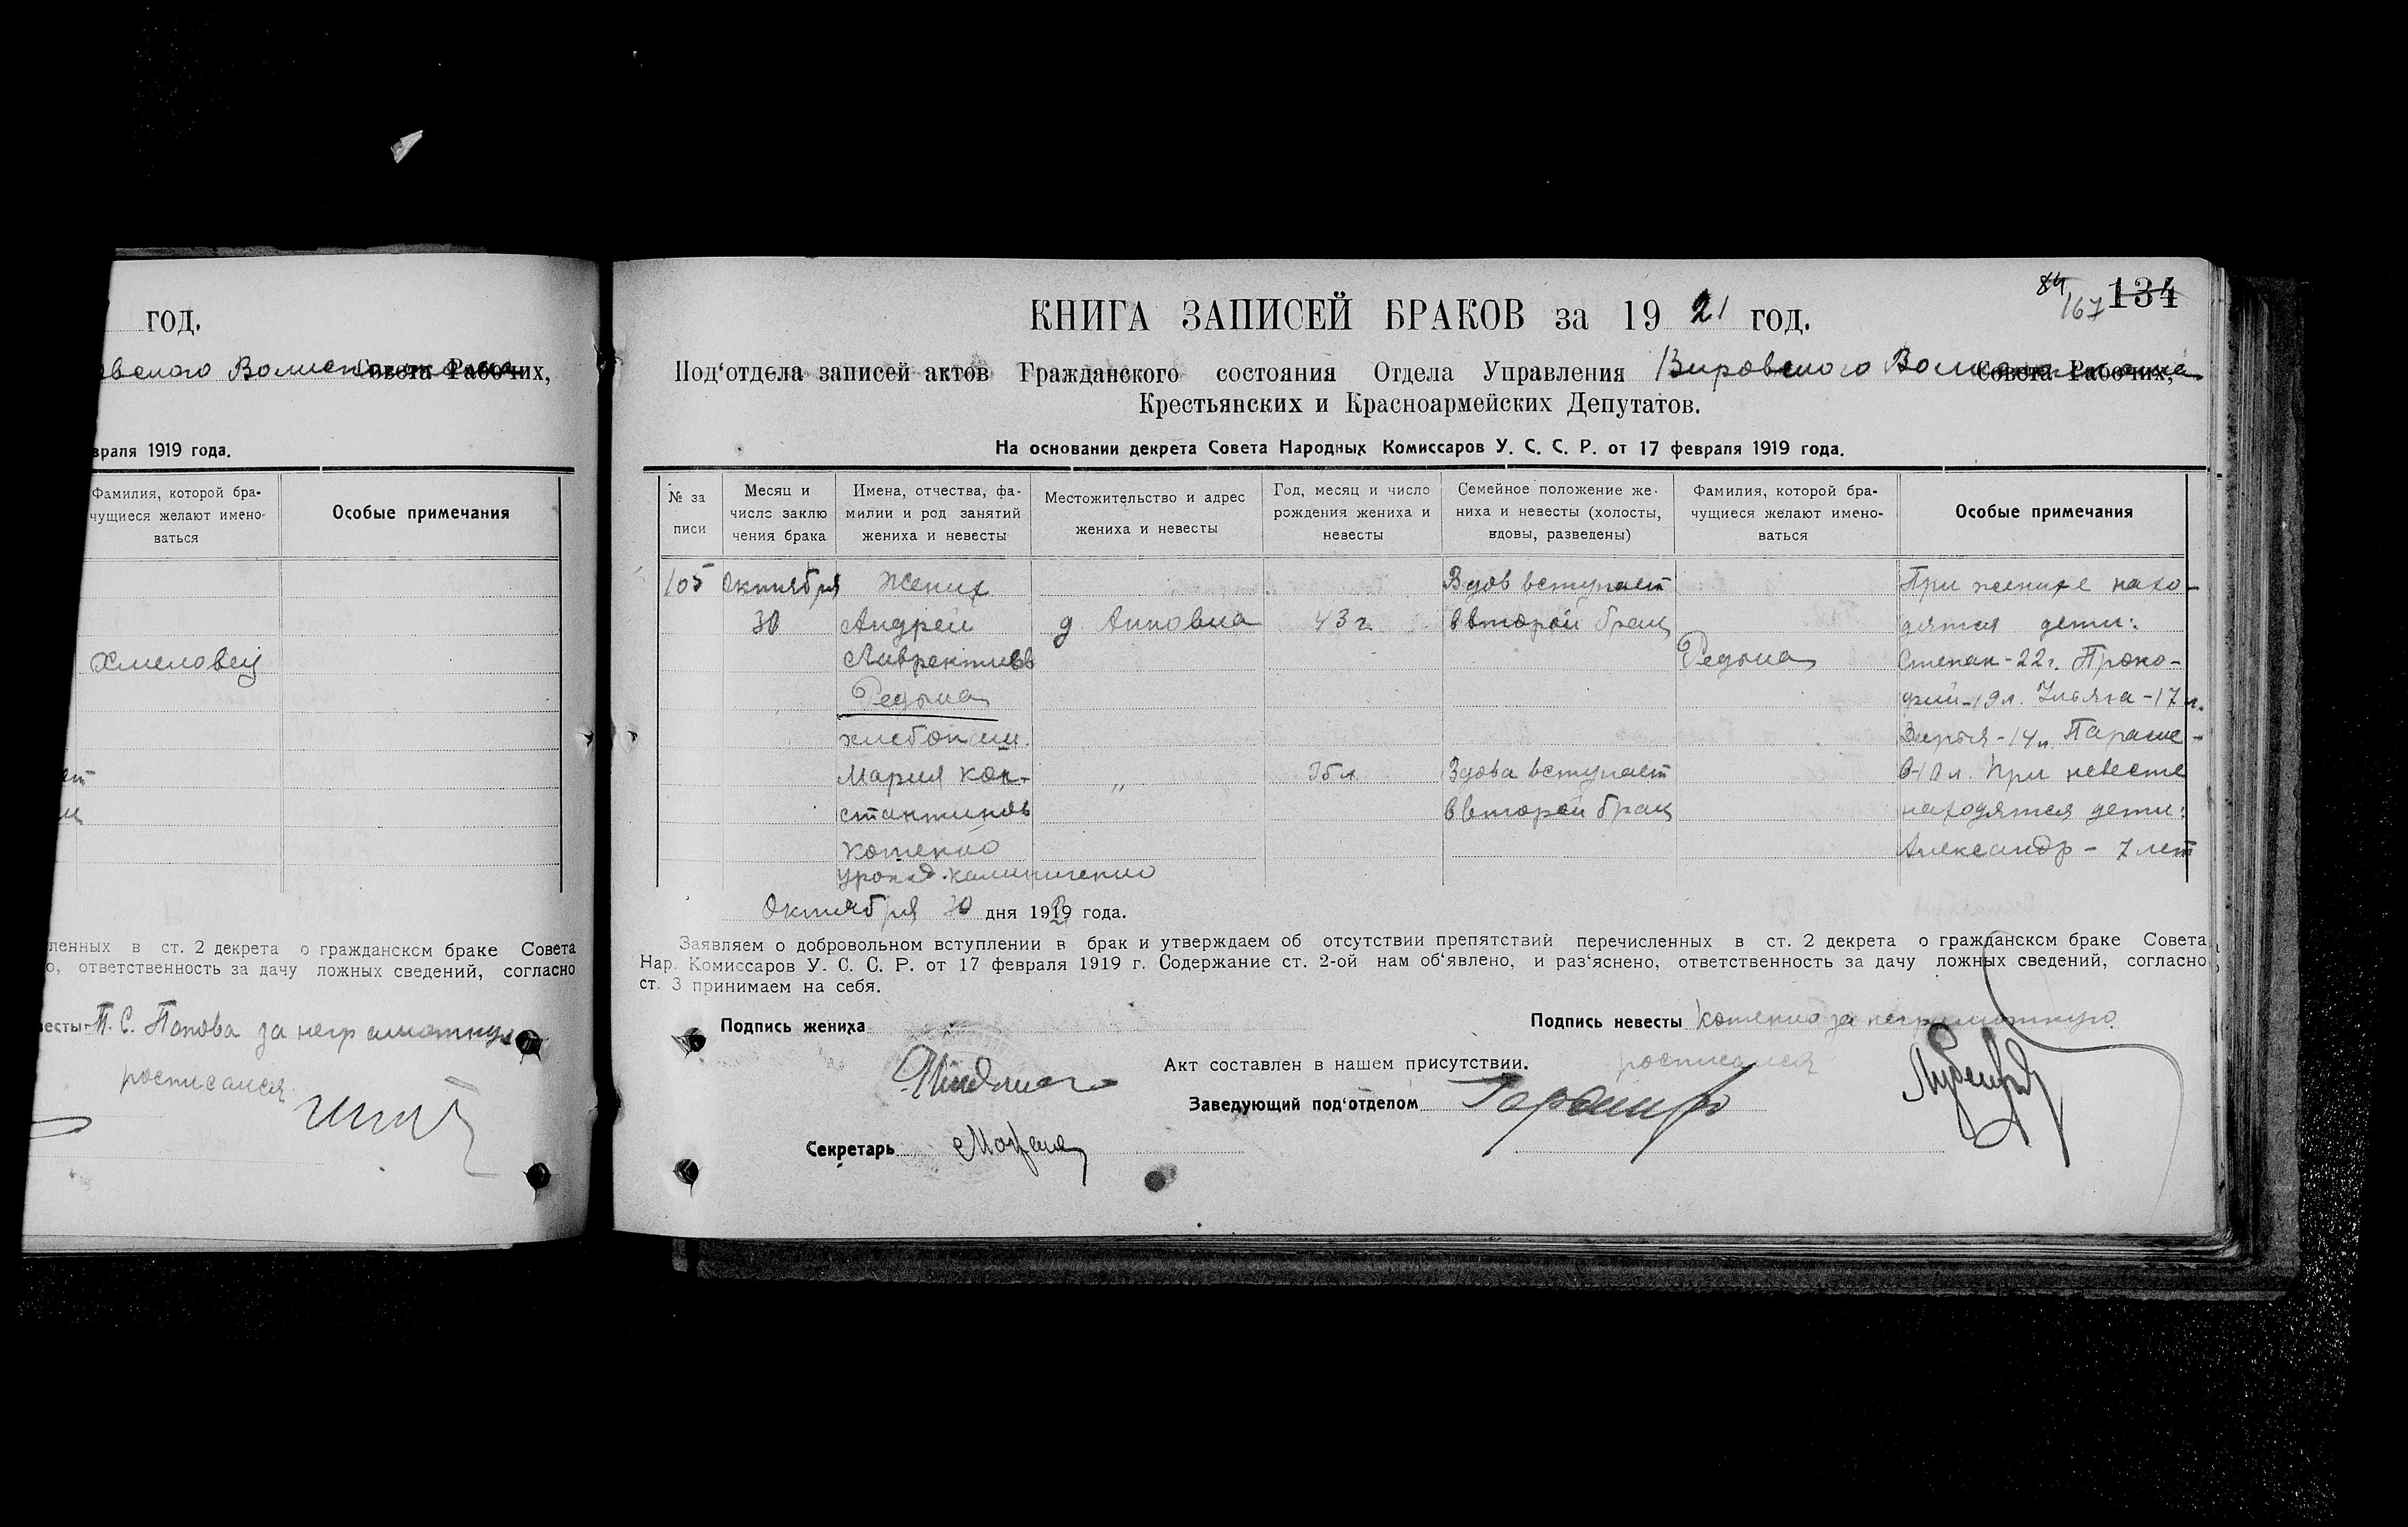 год.
овского Волисполкома Совета Рабочих,
враля 1919 года.
Фамилия, которой бра-
чущиеся желают имено-
ваться
Особые примечания
Хмеловец
ленных в ст. 2 декрета о гражданском браке Совета
о, ответственность за дачу ложных сведений, согласно
весты Т. С. Попова за неграмотную
росписался
84
167
134
КНИГА ЗАПИСЕЙ БРАКОВ за 1921 год.
Под‘отдела записей актов Гражданского состояния Отдела Управления Вировского Волисполкома Совета Рабочих,
Крестьянских и Красноармейских Депутатов.
На основании декрета Совета Народных Комиссаров У. С. С. Р. от 17 февраля 1919 года.
№ за
писи
Месяц и
число заклю
чения брака
Имена, отчества, фа-
милии и род занятий
жениха и невесты
Местожительство и адрес
жениха и невесты
Год, месяц и число
рождения жениха и
невесты
Семейное положение же-
ниха и невесты (холосты,
вдовы, разведены)
Фамилия, которой бра-
чущиеся желают имено-
ваться
Особые примечания
105
Октября
30
Жених
Андрей
Лаврентиев
Редька
хлебопаш.
Мария Кон-
стантинов
Котенко
урожд.
д.
43 г.
35 л.
"
Вдов вступает
второй брак
Вдова вступает
второй брак
Редька
При женихе нахо-
дятся дети:
Степан - 22 г. Проко-
фий - 19 л. - 17 л.
- 14 л. Параске-
в - 10 л. При невесте
находятся дети:
Александр - 7 лет
Октября 30 дня 1919 года.
Заявляем о добровольном вступлении в брак и утверждаем об отсутствии препятствий перечисленных в ст. 2 декрета о гражданском браке Совета
Нар. Комиссаров У. С. С. Р. от 17 февраля 1919 г. Содержание ст. 2-ой нам об‘явлено, и раз‘яснено, ответственность за дачу ложных сведений, согласно
ст. 3 принимаем на себя.
Подпись жениха
Подпись невесты Котенко за неграмотную
росписался
Акт составлен в нашем присутствии.
Заведующий под‘отделом
Секретарь